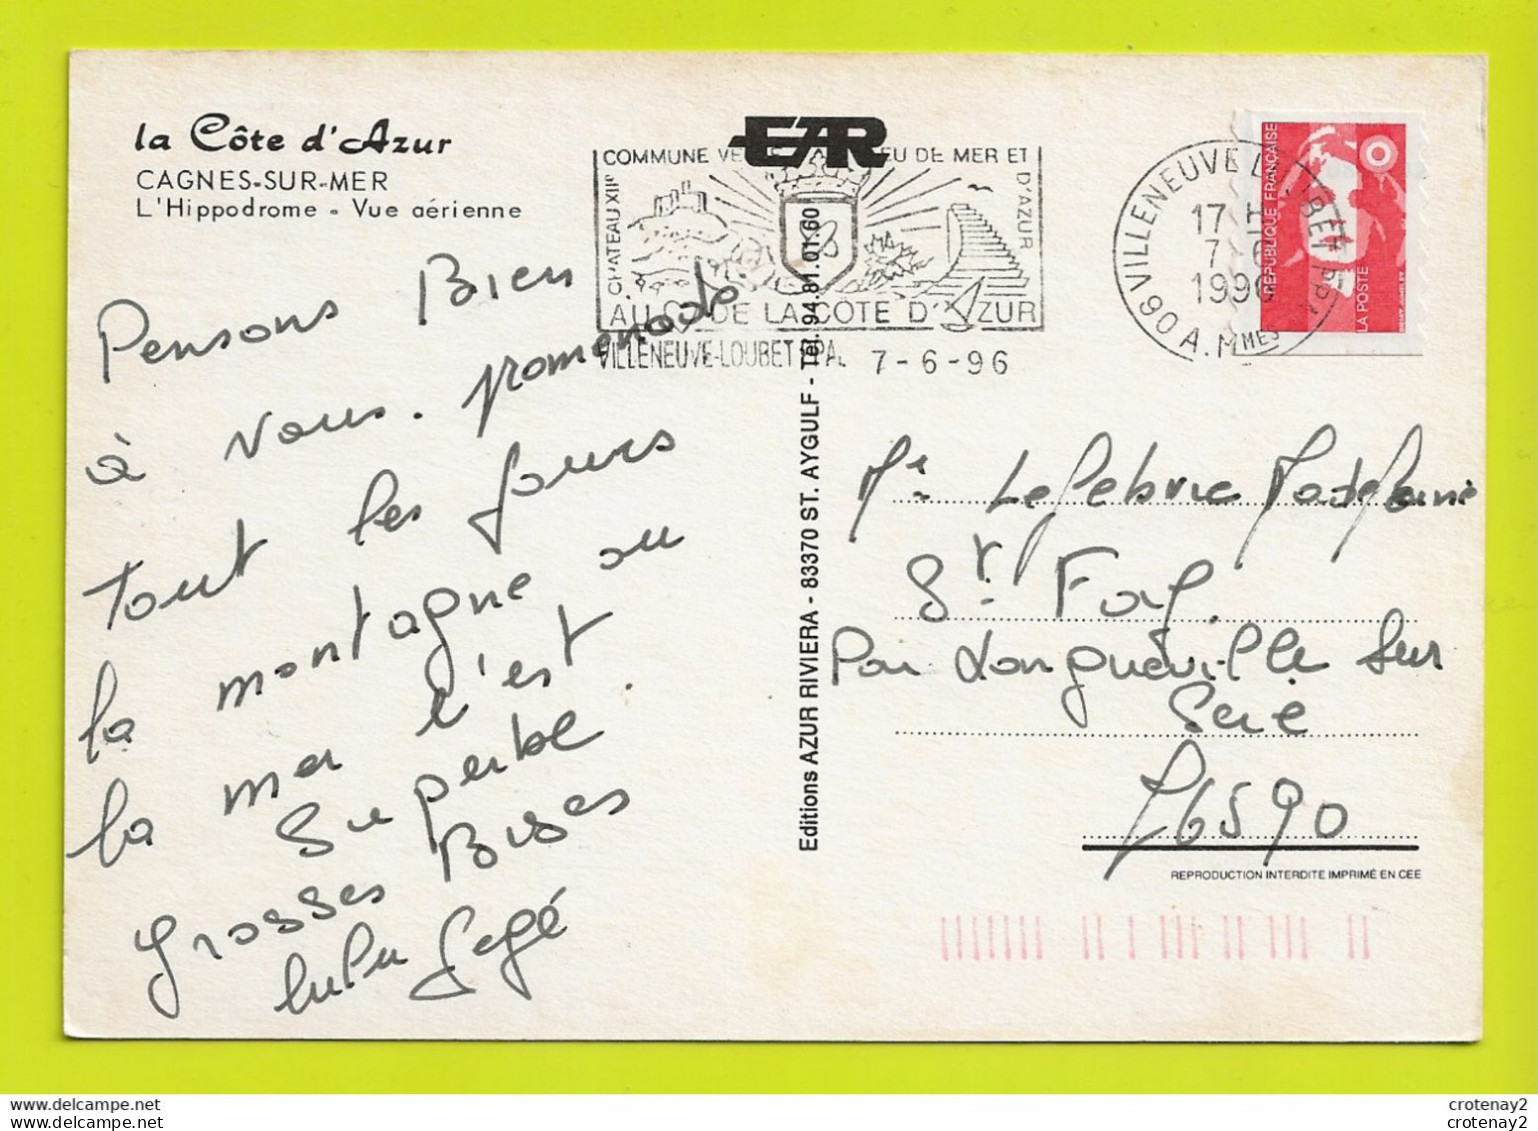 la Côte d'Azur
CAGNES-SUR-MER
L'Hippodrome - Vue aérienne
EAR
COMMUNE
EU DE MER ET
D'AZUR
CHATEAU XIIe
AU
DE LA COTE D'AZUR
VILLENEUVE-LOUBET PPAL 7-6-96
VILLENEUVE LOUBET PPAL
17 H
7-6
1996
06 A. MMES
REPUBLIQUE FRANÇAISE
LA POSTE
Pensons Bien
à vous. promenade
tout les jours
la montagne ou
la mer c'est
Superbe
Grosses Bises
lulu Gégé
Editions AZUR RIVIERA - 83370 ST. AYGULF - Tél. 94.81.01.60
Me Lefebvre Madeleine
St. Foy.
Par Longuéville sur
Scie
76590
REPRODUCTION INTERDITE IMPRIMÉ EN CEE
crotenay2
crotenay2